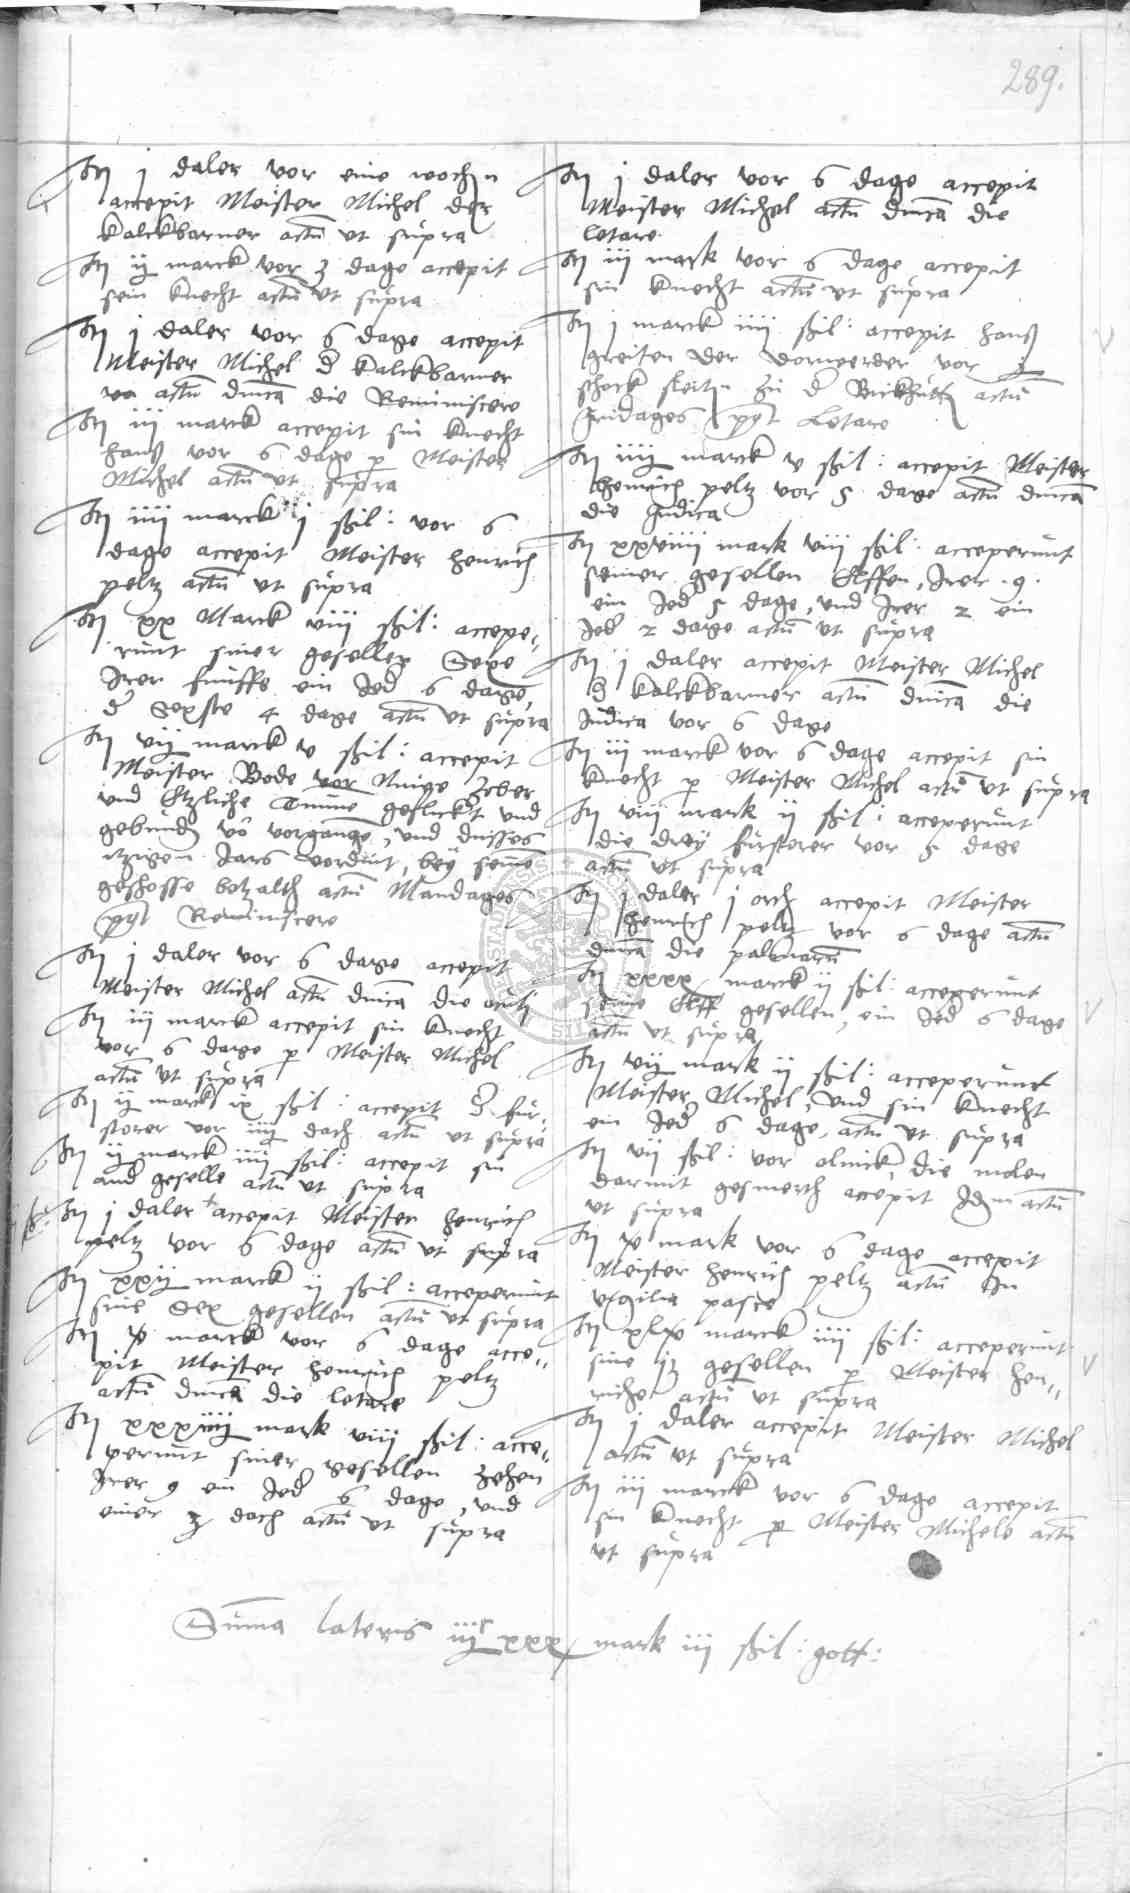 289.
Itȝ j daler vor eine wochȝn
accepit Meister Michel der
kalckbarner actū ut supra
Itȝ ij marck vor 3 dage accepit
sein knecht actū ut supra
Itȝ j daler vor 6 dage accepit
Meister Michel d̄ kalckbarner
actū dnica die Reminiscere
Itȝ iij marck accepit sin knecht
hanß vor 6 dage p Meister
Michel actū ut supra
Itȝ iiij marck j ßil: vor 6
dage accepit Meister henrich
peltz actū ut supra
Itȝ xx Marck viij ßil: accepe„
runt siner gesellen Sexe
Irer funffe ein Jed̄ 6 dage,
d̄ Sexste 4 dage actū ut supra
Itȝ vij marck v ßil: accepit
Meister Bode vor Nuige Zeber
und Etzliche Tunne geflickt und
gebundȝ vō vorgange, und dusses
itzigen Jars vordint, bey seine
geschosse betzalth actū Mandages
pȝt Reminiscere
Itȝ j daler vor 6 dage accepit
Meister Michel actū dnica die oculj
Itȝ iij marck accepit sin knecht
vor 6 dage p Meister Michel
actū ut supra
Itȝ ij marck ix ßil: accepit d̄ für„
storer vor iiij dach actū ut supra
Itȝ ij marck iiij ßil: accepit sin
and geselle actū ut supra
Itȝ j daler + accepit Meister henrich
peltz vor 6 dage actū ut supra
Itȝ xxij marck ij ßil: acceperunt
sine Sex gesellen actū ut supra
Itȝ v marck vor 6 dage acce„
pit Meister henrich peltz
actū dnica die letare
Itȝ xxxiiij mark viij ßil: acce„
perunt siner gesellen Zehen
Irer 9 ein Jed̄ 6 dage, und
einer 3 dach actū ut supra
Itȝ j daler vor 6 dage accepit
Meister Michel actū dnica die
letare
Itȝ iij mark vor 6 dage accepit
sin knecht actū ut supra
Itȝ j marck iiij ßil: accepit hanß
greiten der dornverder vor
schock zu d̄ actū
fridages pȝt Letare
Itȝ iiij marck v ßil: accepit Meister
henrich peltz vor 5 dage actū dnica
die Judica
Itȝ xxviiij mark viij ßil: acceperunt
seiner gesellen Elffen, Irer .9.
ein Jed̄ 5 dage, und Irer 2 ein
Jed̄ 2 dage actū ut supra
Itȝ j daler accepit Meister Michel
d̄ kalckbarner actū dnica die
Judica vor 6 dage
Itȝ iij marck vor 6 dage accepit sin
knecht p Meister Michel actū ut supra
Itȝ viij mark ij ßil: acceperunt
die drey fürstorer vor 5 dage
actū ut supra
Itȝ j daler j orth accepit Meister
henrich peltz vor 6 dage actū
dnica die palmarū
Itȝ xxxx marck ij ßil: acceperunt
seine Elff gesellen, ein Jed̄ 6 dage
actū ut supra
Itȝ vij mark ij ßil: acceperunt
Meister Michel, und sin knecht
ein Jed̄ 6 dage, actū ut supra
Itȝ vij ßil: vor die molen
darmit gesmerth accepit Idem actū
ut supra
Itȝ v mark vor 6 dage accepit
Meister henrich peltz actū In
vigilia pasce
Itȝ xlv marck iiij ßil: acceperunt
sine gesellen p Meister hen„
riche actū ut supra
Itȝ j daler accepit Meister Michel
actū ut supra
Itȝ iij marck vor 6 dage accepit
sin knecht p Meister Michele actū
ut supra
Sum̄a lateris iijᶜ xxx mark iij ßil: gott: